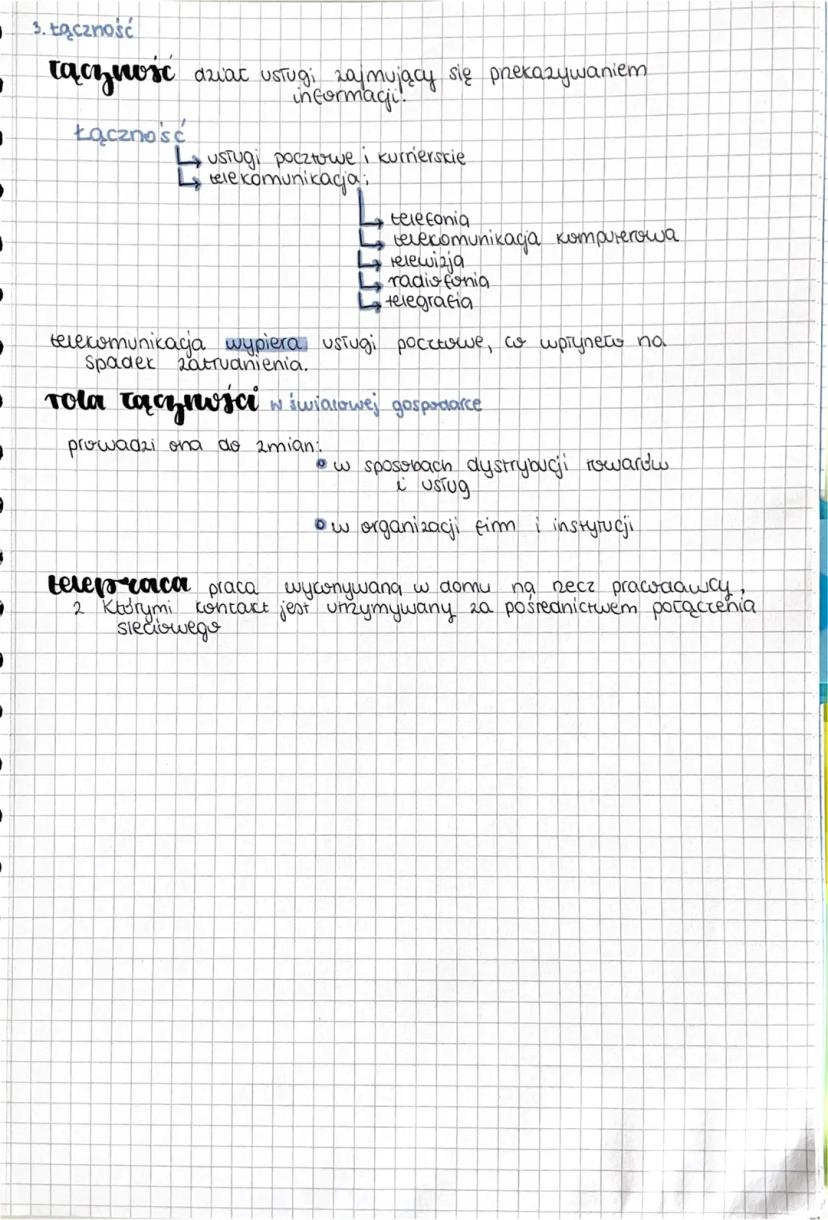 3. Łączność
łączność dział usługi zajmujący się przekazywaniem
informacji.
Łączność
usługi pocztowe i kurrierskie
telekomunikacja:
telefonia
telekomunikacja komputerowa
telewizja
radiofonia
telegrafia
telekomunikacja wypiera usługi pocztowe, co wpłynęło na
spadek zatrudnienia.
rola łączności w światowej gospodarce
prowadzi ona do zmian:
w sposobach dystrybucji towarów
i usług
w organizacji firm i instytucji
telepraca praca wykonywana w domu na rzecz pracodawcy,
z którymi kontakt jest utrzymywany za pośrednictwem połączenia
sieciowego